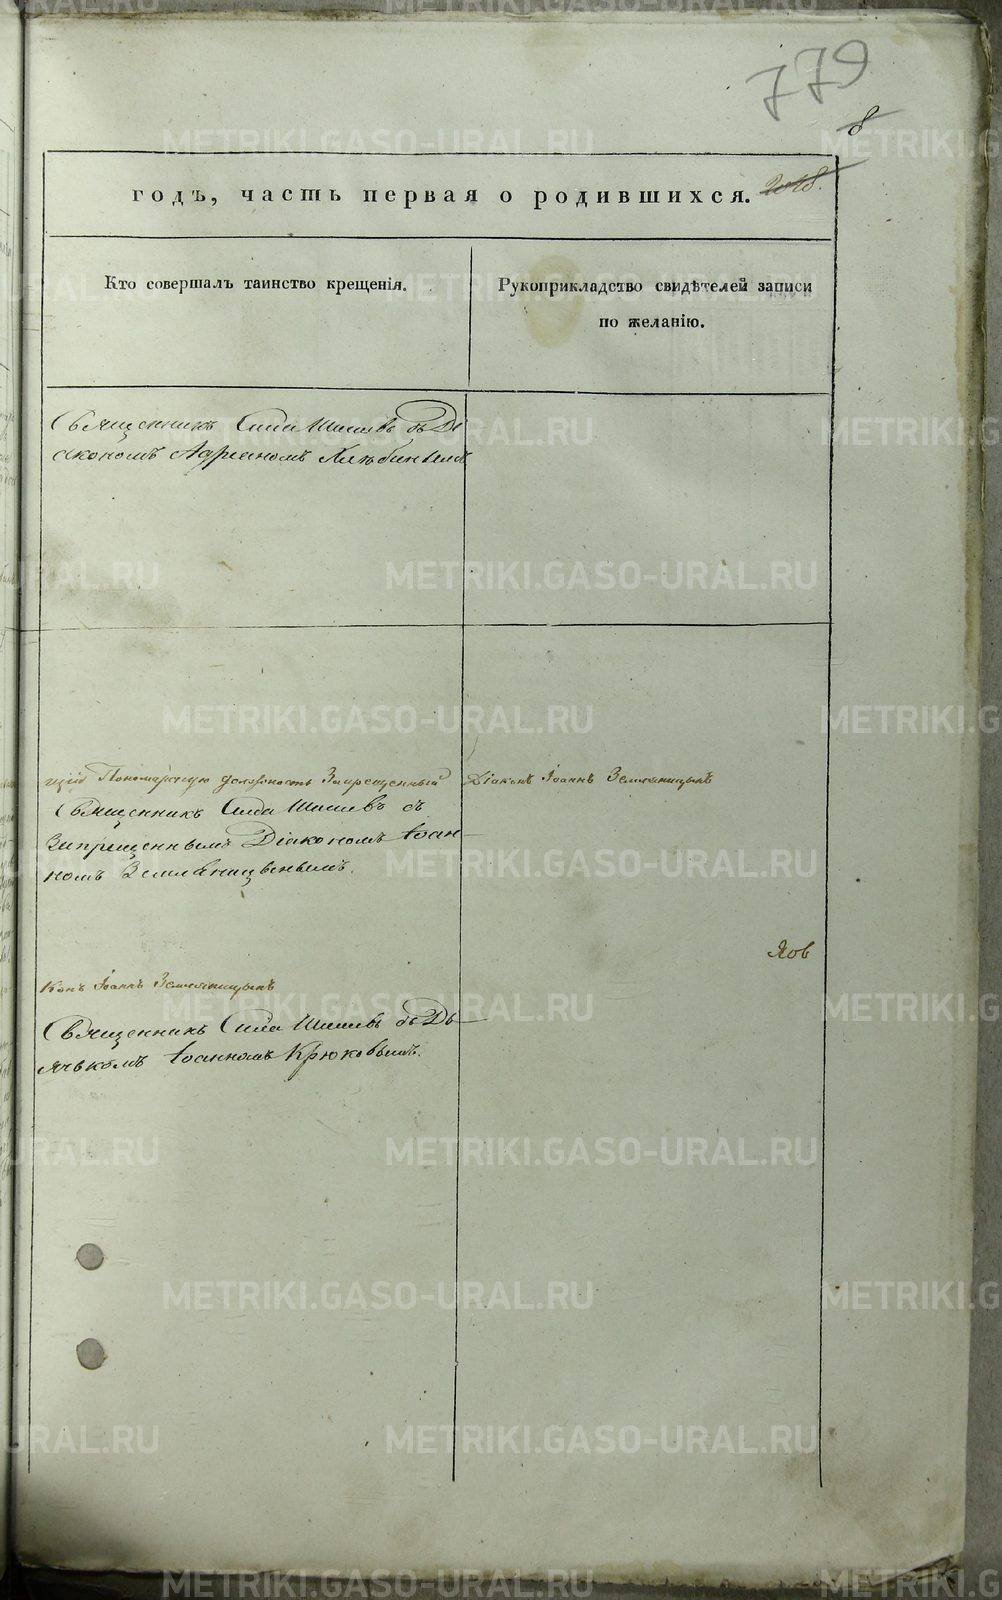 779
8
годъ, часть первая о родившихся.
Кто совершалъ таинство крещенія.
Рукоприкладство свидѣтелей записи
по желанію.
Священникъ Сила Шишевъ съ Ді
акономъ Адрианомъ
щій Пономарскую должность Запрещенный Діаконъ Іоаннъ Земляницынъ
Священникъ Сила Шишевъ съ
Запрещеннымъ Діакономъ Іоан
номъ Земляницынымъ.
Яов
конъ Іоаннъ Земляницынъ
Священникъ Сила Шишевъ съ Дь
ячькомъ Іоанномъ Крюковымъ.
METRIKI.GASO-URAL.RU